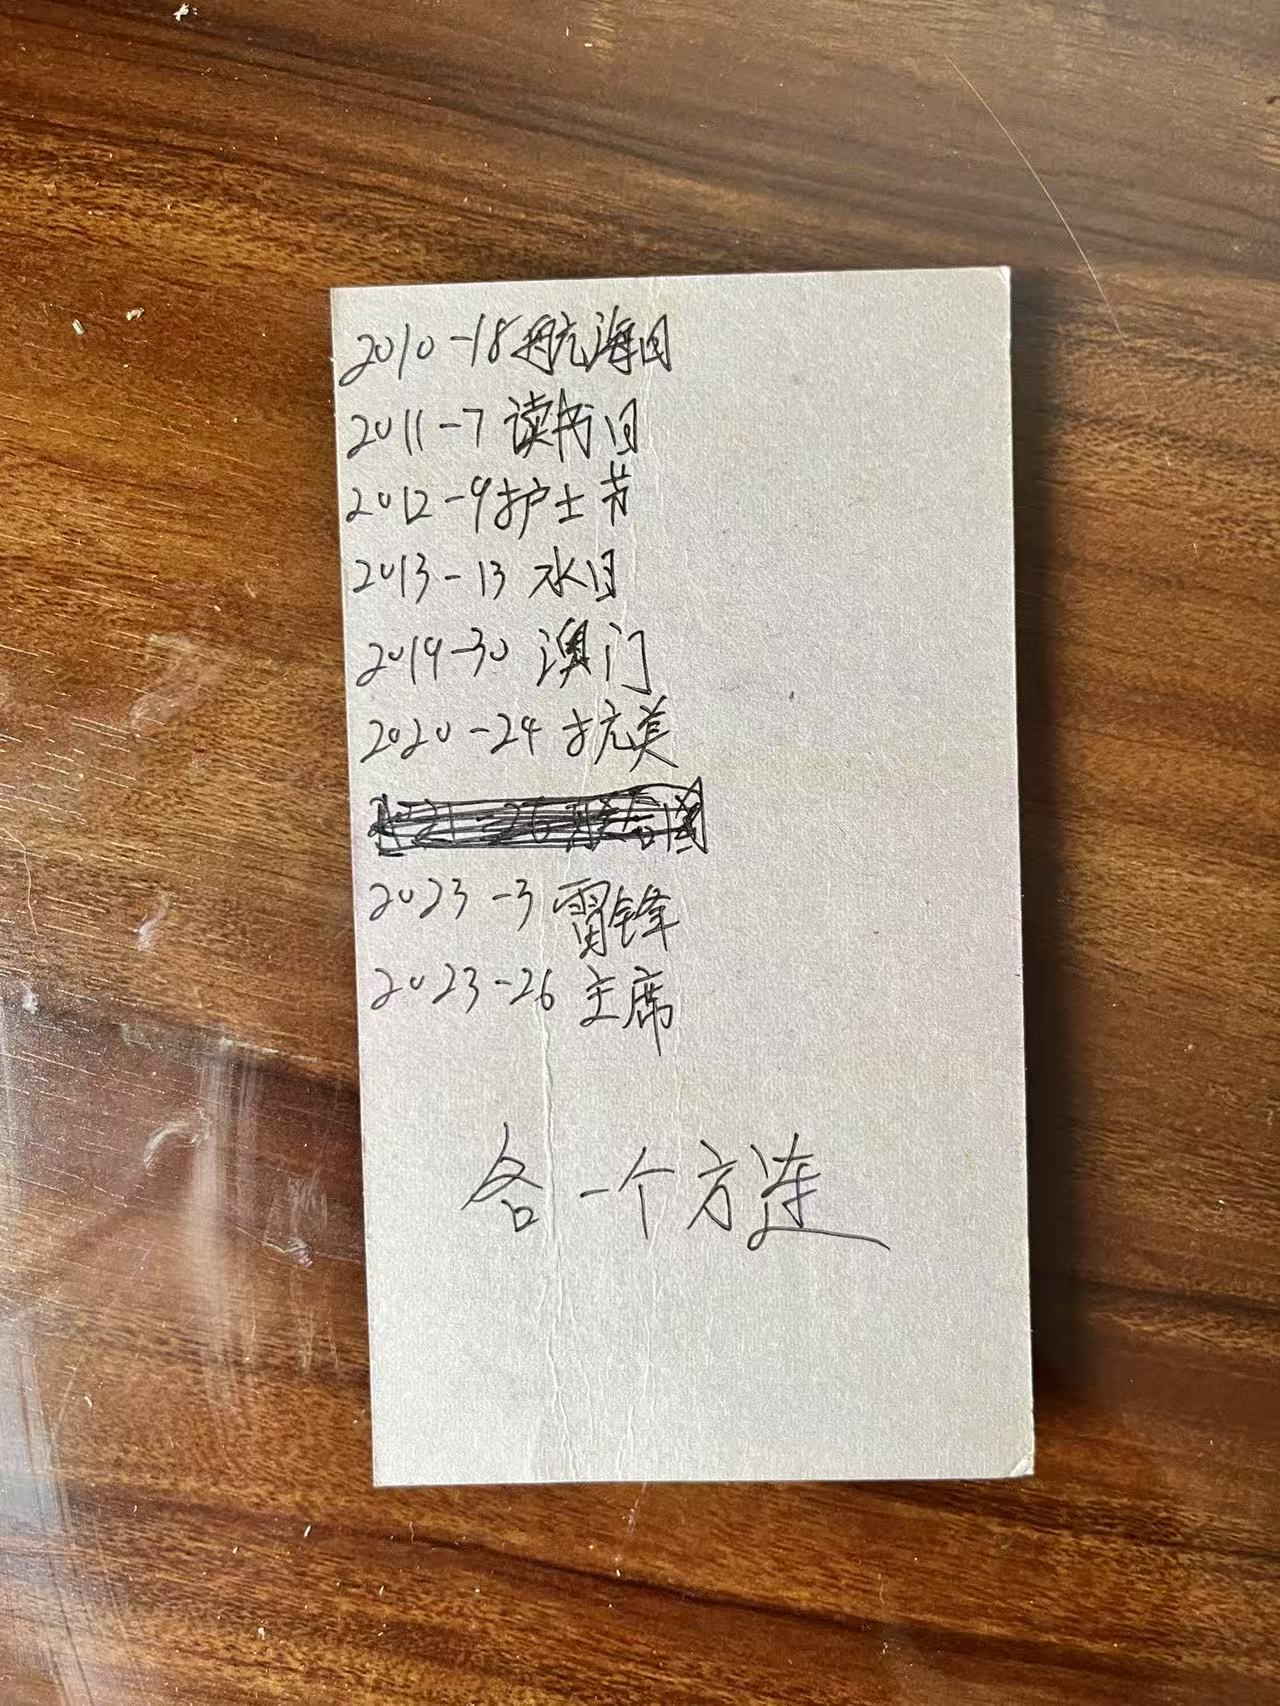 2010-18航海日
2011-7 读书日
2012-9护士节
2013-13 水日
2019-30 澳门
2020-24 抗美
2023-3雷锋
2023-26 主席
各一个方连